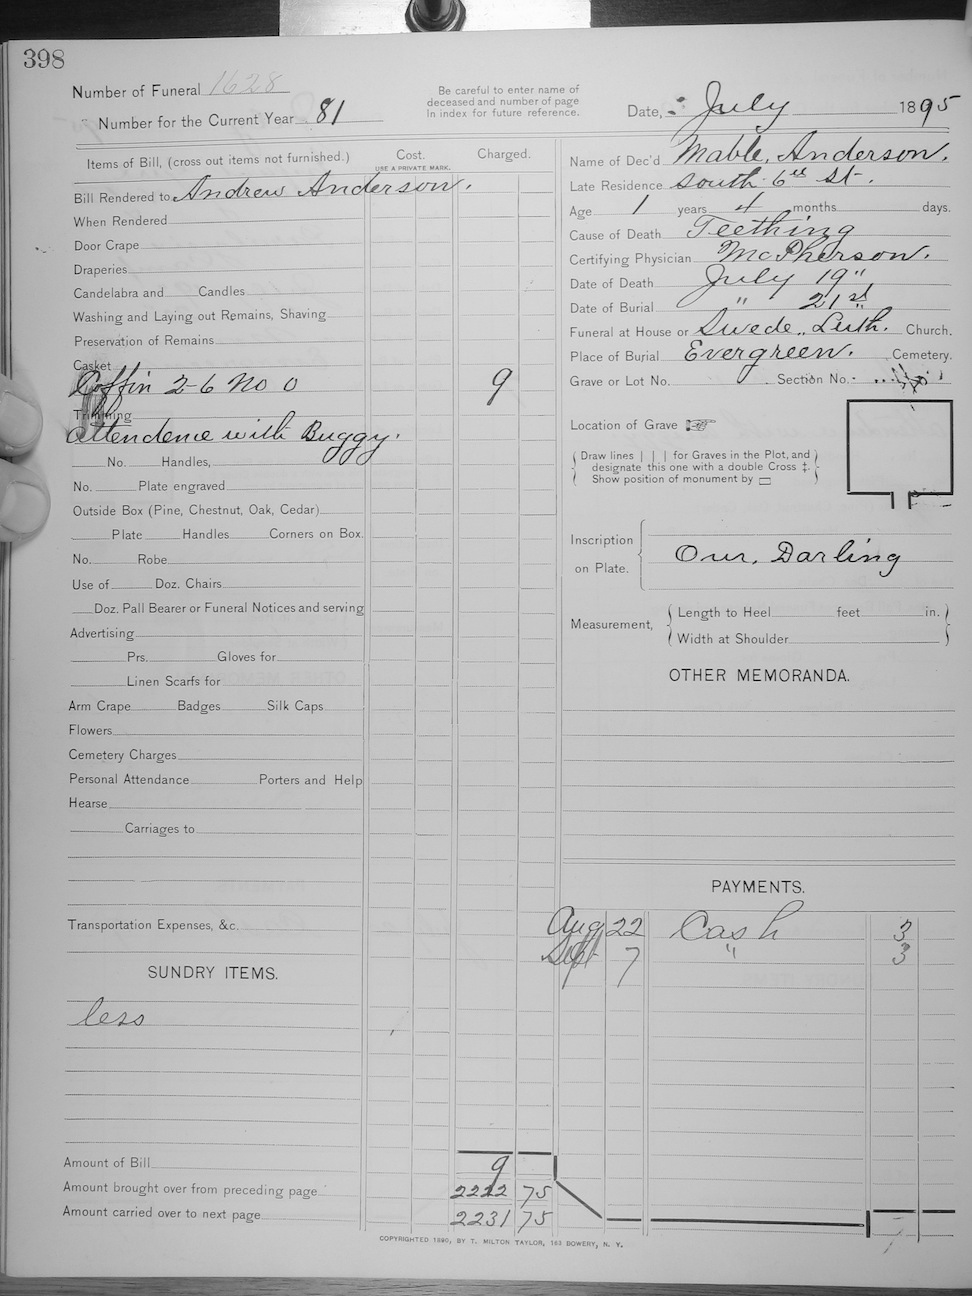 398
Number of Funeral 1628
Number for the Current Year 81
Be careful to enter name of
deceased and number of page
in index for future reference.
Date, July 1895
Items of Bill, (cross out items not furnished.) Cost. Charged.
USE A PRIVATE MARK.
Bill Rendered to Andrew Anderson.
When Rendered
Door Crape
Draperies
Candelabra and Candles
Washing and Laying out Remains, Shaving
Preservation of Remains
Casket
Coffin 2-6 No 0 9
Trimming
Attendence with Buggy.
No. Handles,
No. Plate engraved
Outside Box (Pine, Chestnut, Oak, Cedar)
Plate Handles Corners on Box.
No. Robe
Use of Doz. Chairs
Doz. Pall Bearer or Funeral Notices and serving
Advertising
Prs. Gloves for
Linen Scarfs for
Arm Crape Badges Silk Caps
Flowers
Cemetery Charges
Personal Attendance Porters and Help
Hearse
Carriages to
Transportation Expenses, &c.
SUNDRY ITEMS.
less
Amount of Bill 9
Amount brought over from preceding page 2222 75
Amount carried over to next page 2231 75
Name of Dec'd Mable, Anderson.
Late Residence South 6th St.
Age 1 years 4 months days.
Cause of Death Teething
Certifying Physician McPherson.
Date of Death July 19"
Date of Burial " 21st
Funeral at House or Swede. Luth. Church.
Place of Burial Evergreen. Cemetery.
Grave or Lot No. Section No.
Location of Grave
Draw lines | | | for Graves in the Plot, and
designate this one with a double Cross ‡.
Show position of monument by ▭
Inscription
on Plate. Our, Darling
Measurement, Length to Heel feet in.
Width at Shoulder
OTHER MEMORANDA.
PAYMENTS.
Aug 22 Cash 3
Sept 7 " 3
COPYRIGHTED 1890, BY T. MILTON TAYLOR, 163 BOWERY, N. Y.